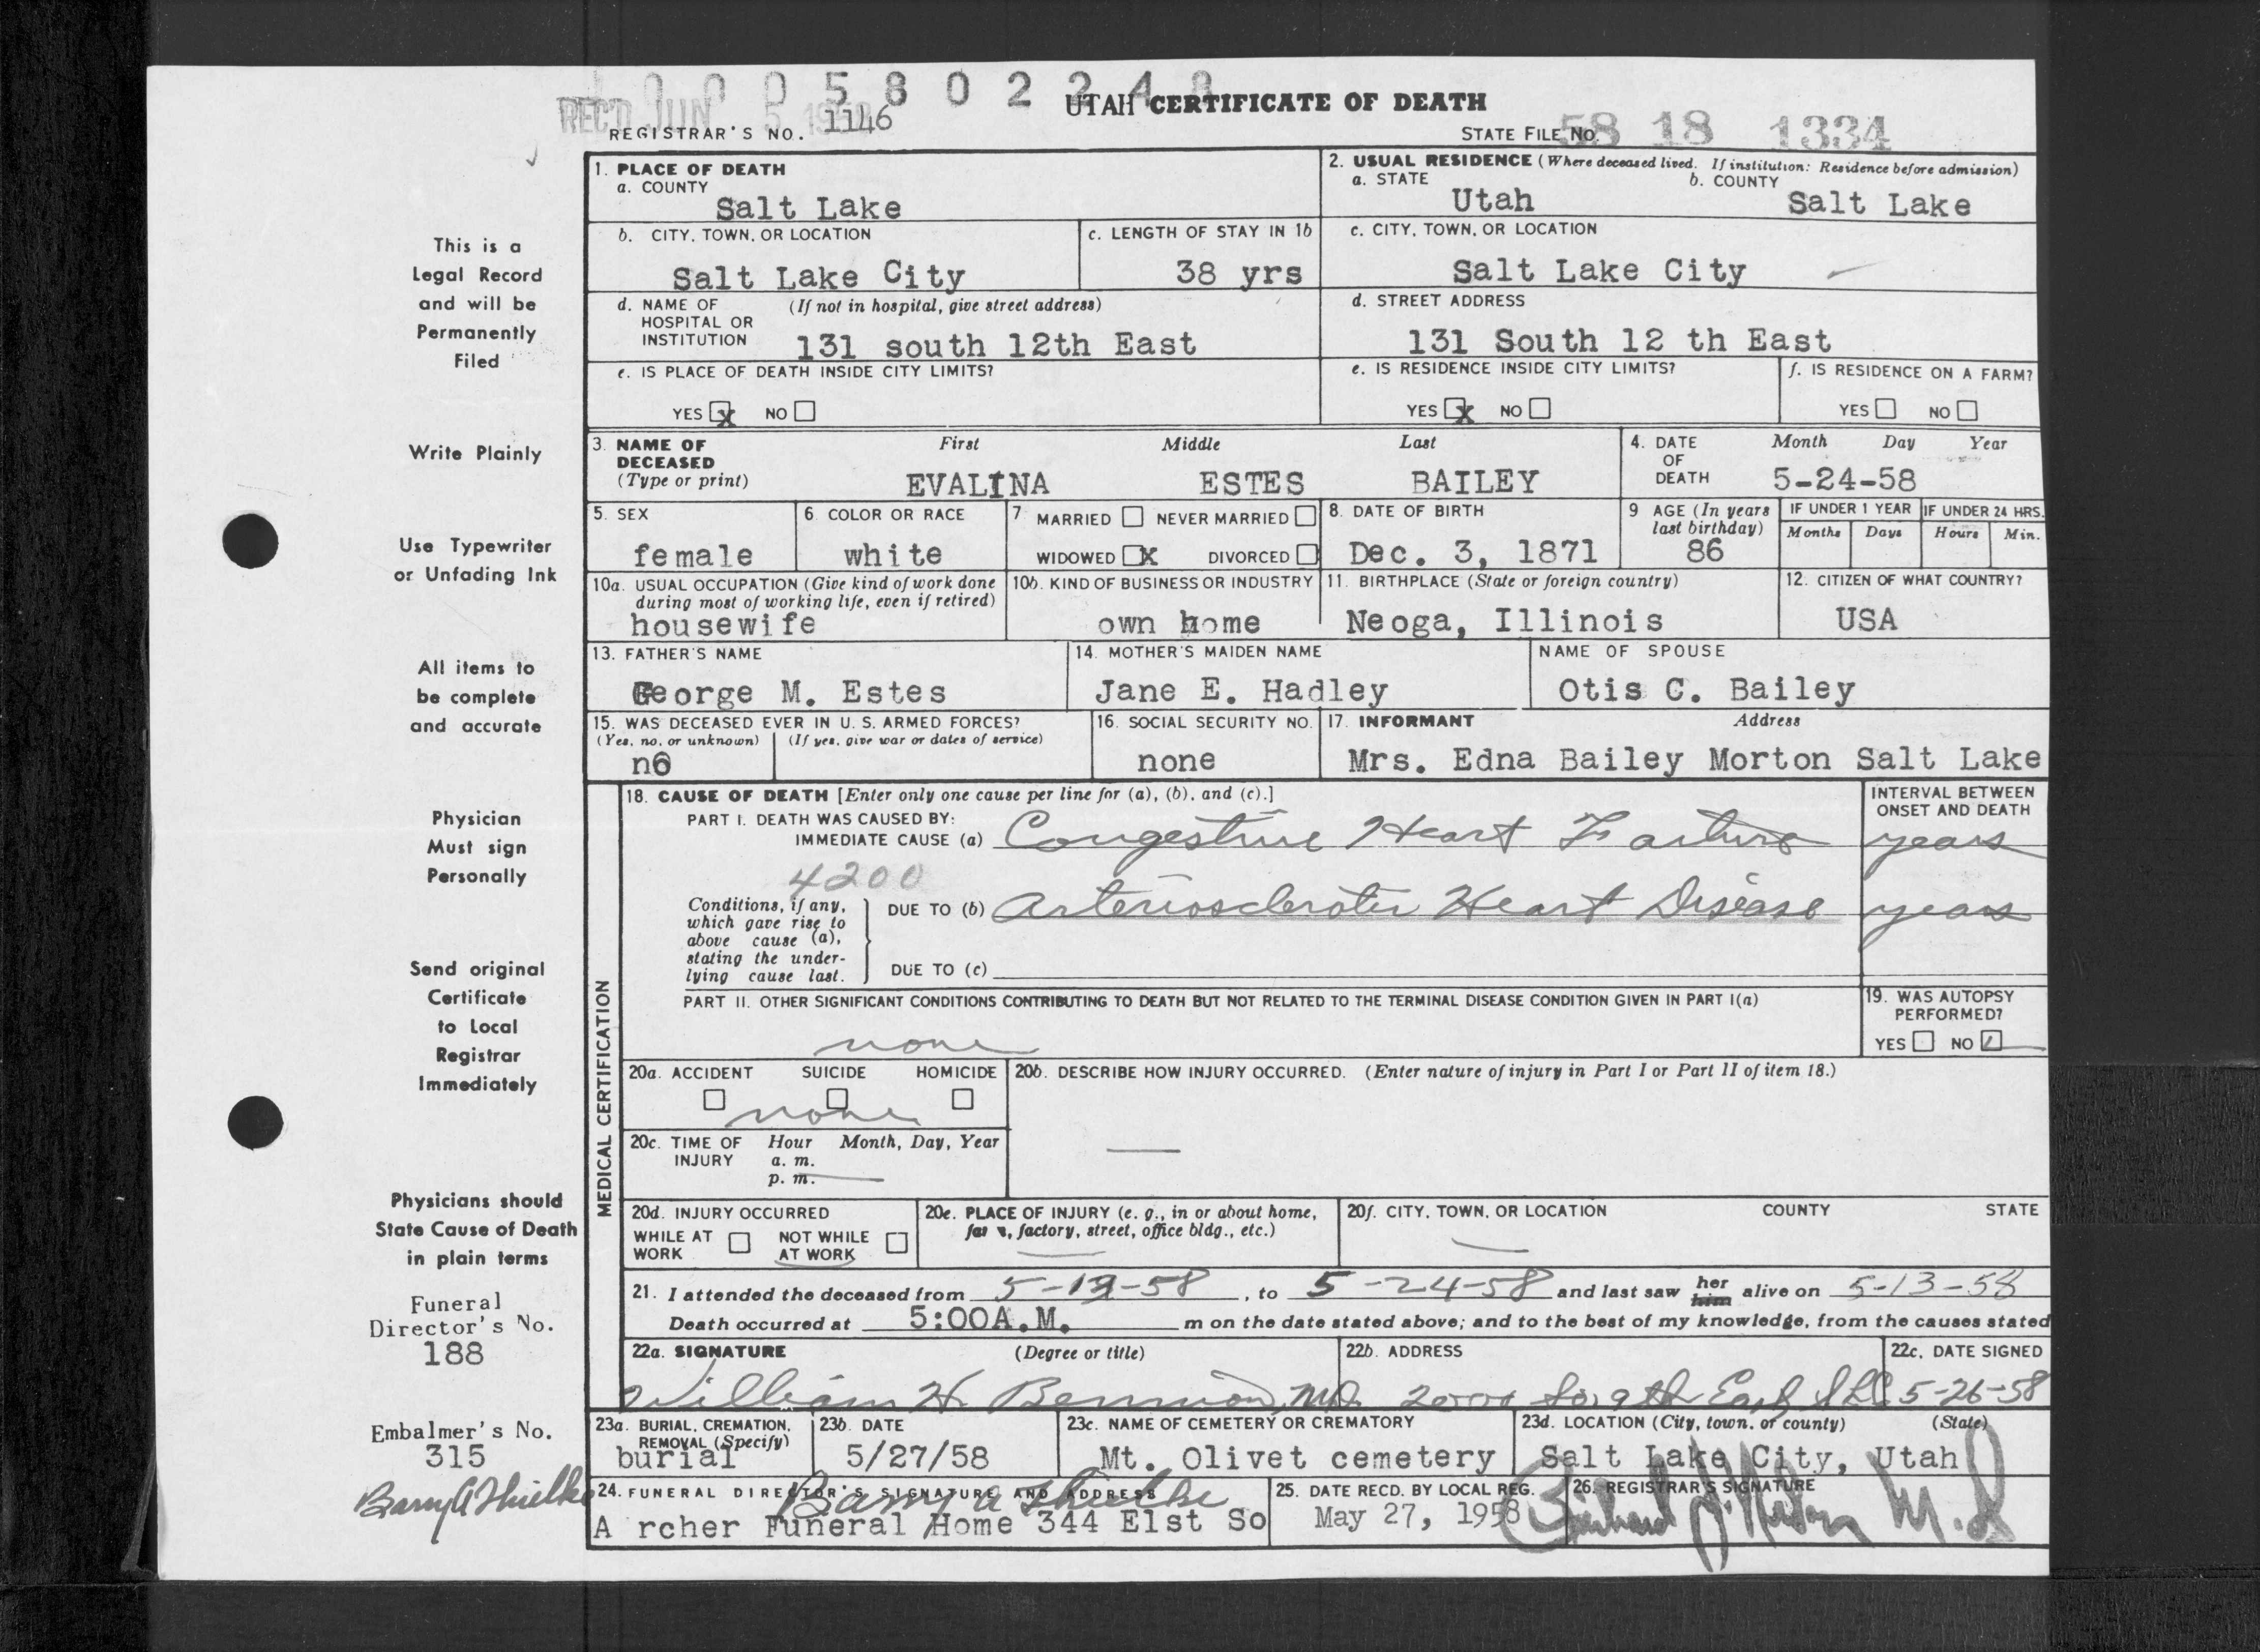 1 0 0 0 5 8 0 2 2 4 8
REC'D JUN 5 1958
UTAH CERTIFICATE OF DEATH
REGISTRAR'S NO. 1146
STATE FILE NO. 58 18 1334
This is a
Legal Record
and will be
Permanently
Filed
Write Plainly
Use Typewriter
or Unfading Ink
All items to
be complete
and accurate
Physician
Must sign
Personally
Send original
Certificate
to Local
Registrar
Immediately
Physicians should
State Cause of Death
in plain terms
Funeral
Director's No.
188
Embalmer's No.
315
Barry A Thielke
1. PLACE OF DEATH
a. COUNTY
Salt Lake
2. USUAL RESIDENCE (Where deceased lived. If institution: Residence before admission)
a. STATE
Utah
b. COUNTY
Salt Lake
b. CITY, TOWN, OR LOCATION
Salt Lake City
c. LENGTH OF STAY IN 1b
38 yrs
c. CITY, TOWN, OR LOCATION
Salt Lake City
d. NAME OF (If not in hospital, give street address)
HOSPITAL OR
INSTITUTION
131 south 12th East
d. STREET ADDRESS
131 South 12 th East
e. IS PLACE OF DEATH INSIDE CITY LIMITS?
YES x NO
e. IS RESIDENCE INSIDE CITY LIMITS?
YES x NO
f. IS RESIDENCE ON A FARM?
YES NO
3. NAME OF DECEASED
(Type or print)
First Middle Last
EVALINA ESTES BAILEY
4. DATE OF DEATH
Month Day Year
5-24-58
5. SEX
female
6. COLOR OR RACE
white
7. MARRIED NEVER MARRIED
WIDOWED X DIVORCED
8. DATE OF BIRTH
Dec. 3, 1871
9 AGE (In years
last birthday)
86
IF UNDER 1 YEAR
Months Days
IF UNDER 24 HRS.
Hours Min.
10a. USUAL OCCUPATION (Give kind of work done
during most of working life, even if retired)
housewife
10b. KIND OF BUSINESS OR INDUSTRY
own home
11. BIRTHPLACE (State or foreign country)
Neoga, Illinois
12. CITIZEN OF WHAT COUNTRY?
USA
13. FATHER'S NAME
George M. Estes
14. MOTHER'S MAIDEN NAME
Jane E. Hadley
NAME OF SPOUSE
Otis C. Bailey
15. WAS DECEASED EVER IN U. S. ARMED FORCES?
(Yes, no, or unknown) (If yes, give war or dates of service)
no
16. SOCIAL SECURITY NO.
none
17. INFORMANT Address
Mrs. Edna Bailey Morton Salt Lake
MEDICAL CERTIFICATION
18. CAUSE OF DEATH [Enter only one cause per line for (a), (b), and (c).]
INTERVAL BETWEEN
ONSET AND DEATH
PART I. DEATH WAS CAUSED BY:
IMMEDIATE CAUSE (a) Congestive Heart Failure years
4200
Conditions, if any,
which gave rise to
above cause (a),
stating the under-
lying cause last.
DUE TO (b) Arteriosclerotic Heart Disease years
DUE TO (c)
PART II. OTHER SIGNIFICANT CONDITIONS CONTRIBUTING TO DEATH BUT NOT RELATED TO THE TERMINAL DISEASE CONDITION GIVEN IN PART I(a)
none
19. WAS AUTOPSY
PERFORMED?
YES NO
20a. ACCIDENT SUICIDE HOMICIDE
none
20b. DESCRIBE HOW INJURY OCCURRED. (Enter nature of injury in Part I or Part II of item 18.)
20c. TIME OF INJURY
Hour Month, Day, Year
a. m.
p. m.
20d. INJURY OCCURRED
WHILE AT WORK NOT WHILE AT WORK
20e. PLACE OF INJURY (e. g., in or about home,
farm, factory, street, office bldg., etc.)
20f. CITY, TOWN, OR LOCATION COUNTY STATE
21. I attended the deceased from 5-13-58, to 5-24-58 and last saw her him alive on 5-13-58
Death occurred at 5:00A.M. m on the date stated above; and to the best of my knowledge, from the causes stated
22a. SIGNATURE (Degree or title)
William H. Bennion, M.D.
22b. ADDRESS
2000 So. 9th East SLC
22c. DATE SIGNED
5-26-58
23a. BURIAL, CREMATION,
REMOVAL (Specify)
burial
23b. DATE
5/27/58
23c. NAME OF CEMETERY OR CREMATORY
Mt. Olivet cemetery
23d. LOCATION (City, town, or county) (State)
Salt Lake City, Utah
24. FUNERAL DIRECTOR'S SIGNATURE AND ADDRESS
Barry A Thielke
A rcher Funeral Home 344 E1st So
25. DATE RECD. BY LOCAL REG.
May 27, 1958
26. REGISTRAR'S SIGNATURE
M.D.